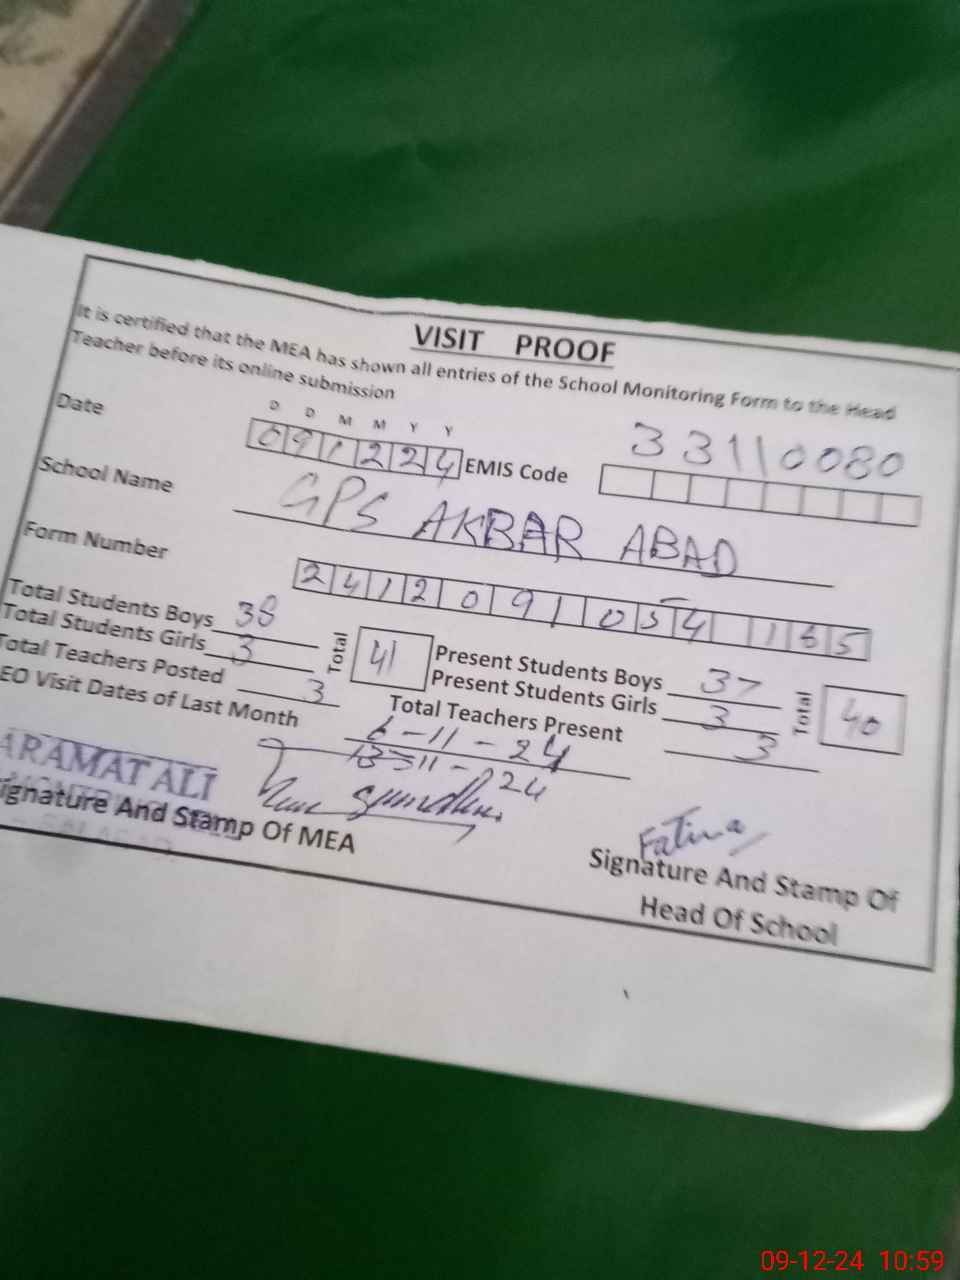 VISIT PROOF
It is certified that the MEA has shown all entries of the School Monitoring Form to the Head
Teacher before its online submission
D D M M Y Y
Date 091224 EMIS Code 33110080
School Name GPS AKBAR ABAD
Form Number 2412091054165
Total Students Boys 38 Total 41 Present Students Boys 37 Total 40
Total Students Girls 3 Present Students Girls 3
Total Teachers Posted 3 Total Teachers Present 3
EO Visit Dates of Last Month 6-11-24
13-11-24
ARAMAT ALI
ignature And Stamp Of MEA
Fatima
Signature And Stamp Of
Head Of School
09-12-24 10:59